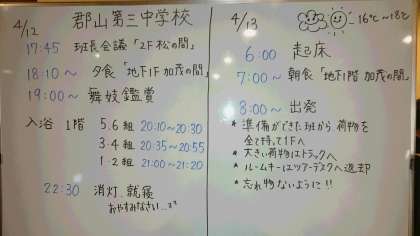 4/12 郡山第三中学校
17:45 班長会議「2F 松の間」
18:10〜 夕食「地下1F 加茂の間」
19:00〜 舞妓鑑賞
入浴 1階 5.6組 20:10〜20:30
3・4組 20:35〜20:55
1・2組 21:00〜21:20
22:30 消灯、就寝
おやすみなさい...zz
4/13 16℃〜18℃
6:00 起床
7:00〜 朝食「地下1階 加茂の間」
8:00〜 出発
* 準備ができた班から荷物を
全て持って1Fへ
* 大きい荷物はトラックへ
* ルームキーはツアーデスクへ返却
* 忘れ物ないように!!